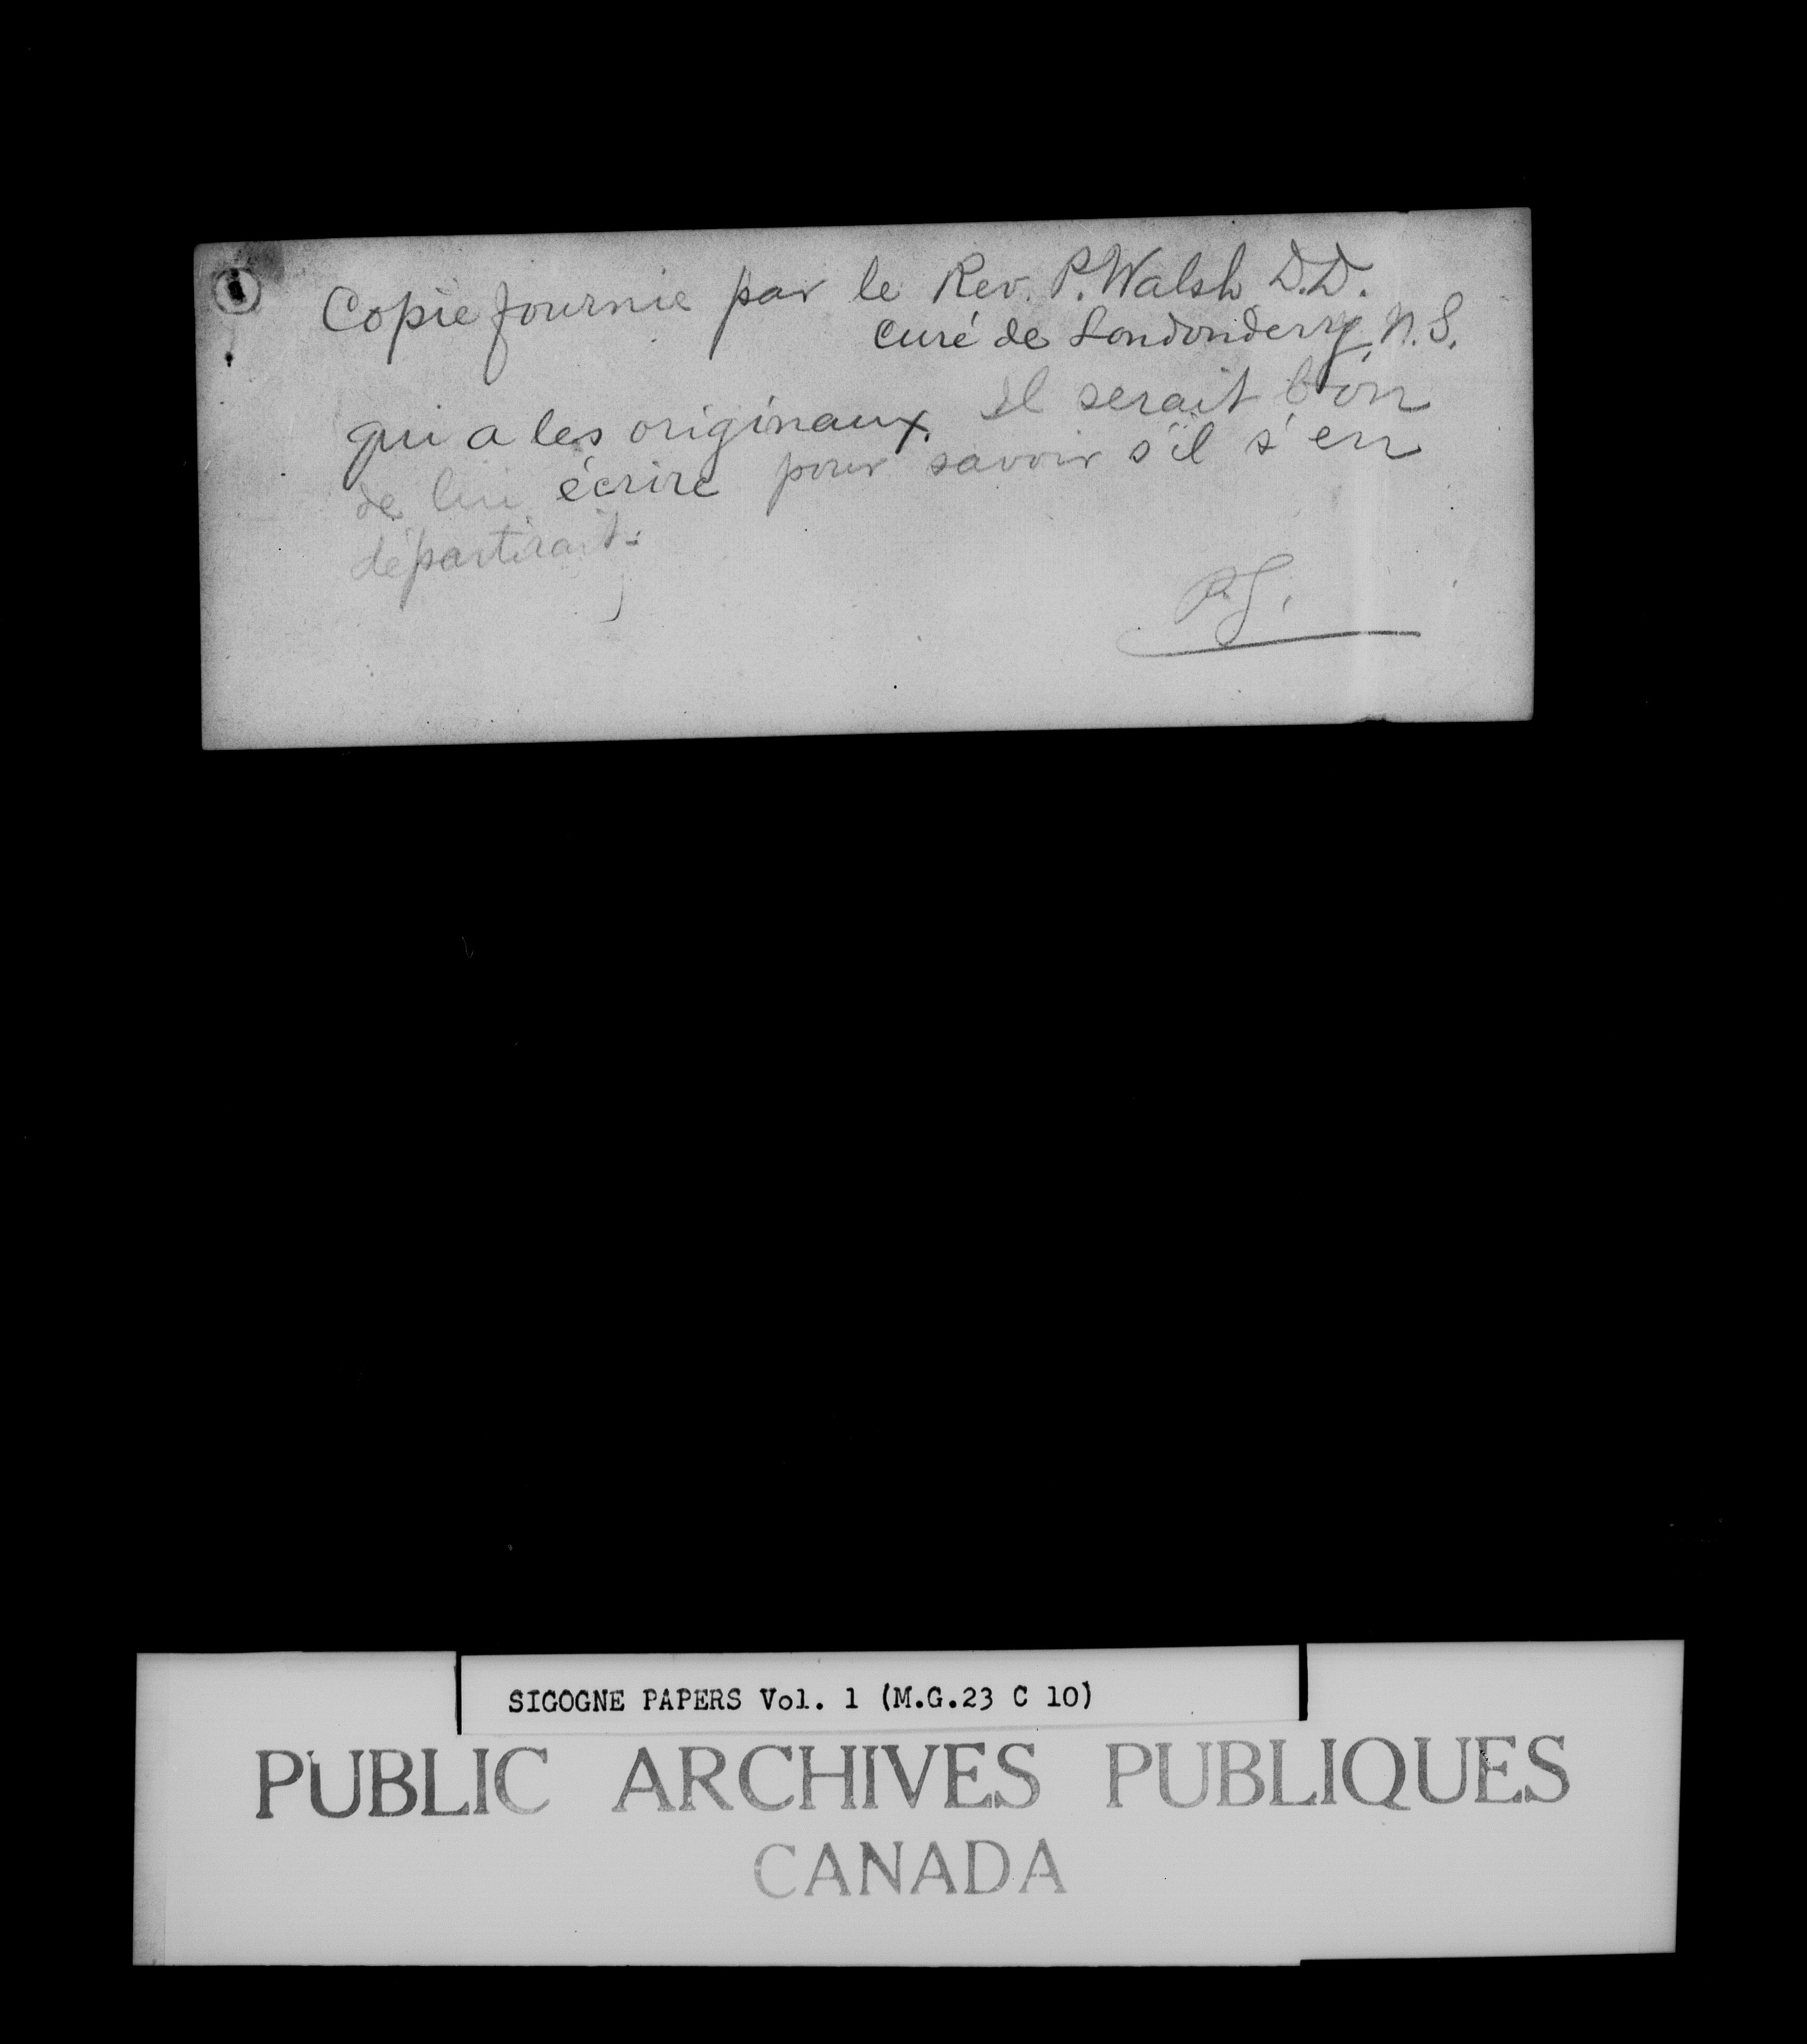 Copie fournie par le Rev. P. Walsh D.D.
curé de Londonderry, N.S.
qui a les originaux. Il serait bon
de lui écrire pour savoir s'il s'en
départirait.
SIGOGNE PAPERS Vol. 1 (M.G.23 C 10)
PUBLIC ARCHIVES PUBLIQUES
CANADA